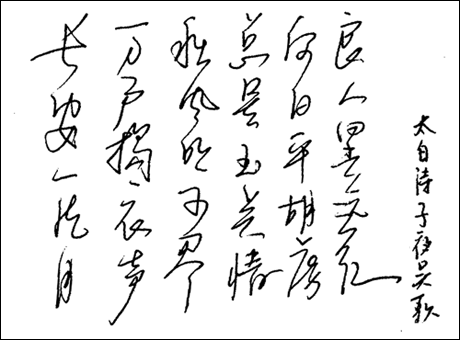 长安一片月
万户捣衣声
秋风吹不尽
总是玉关情
何日平胡虏
良人罢远征
太白诗子夜吴歌